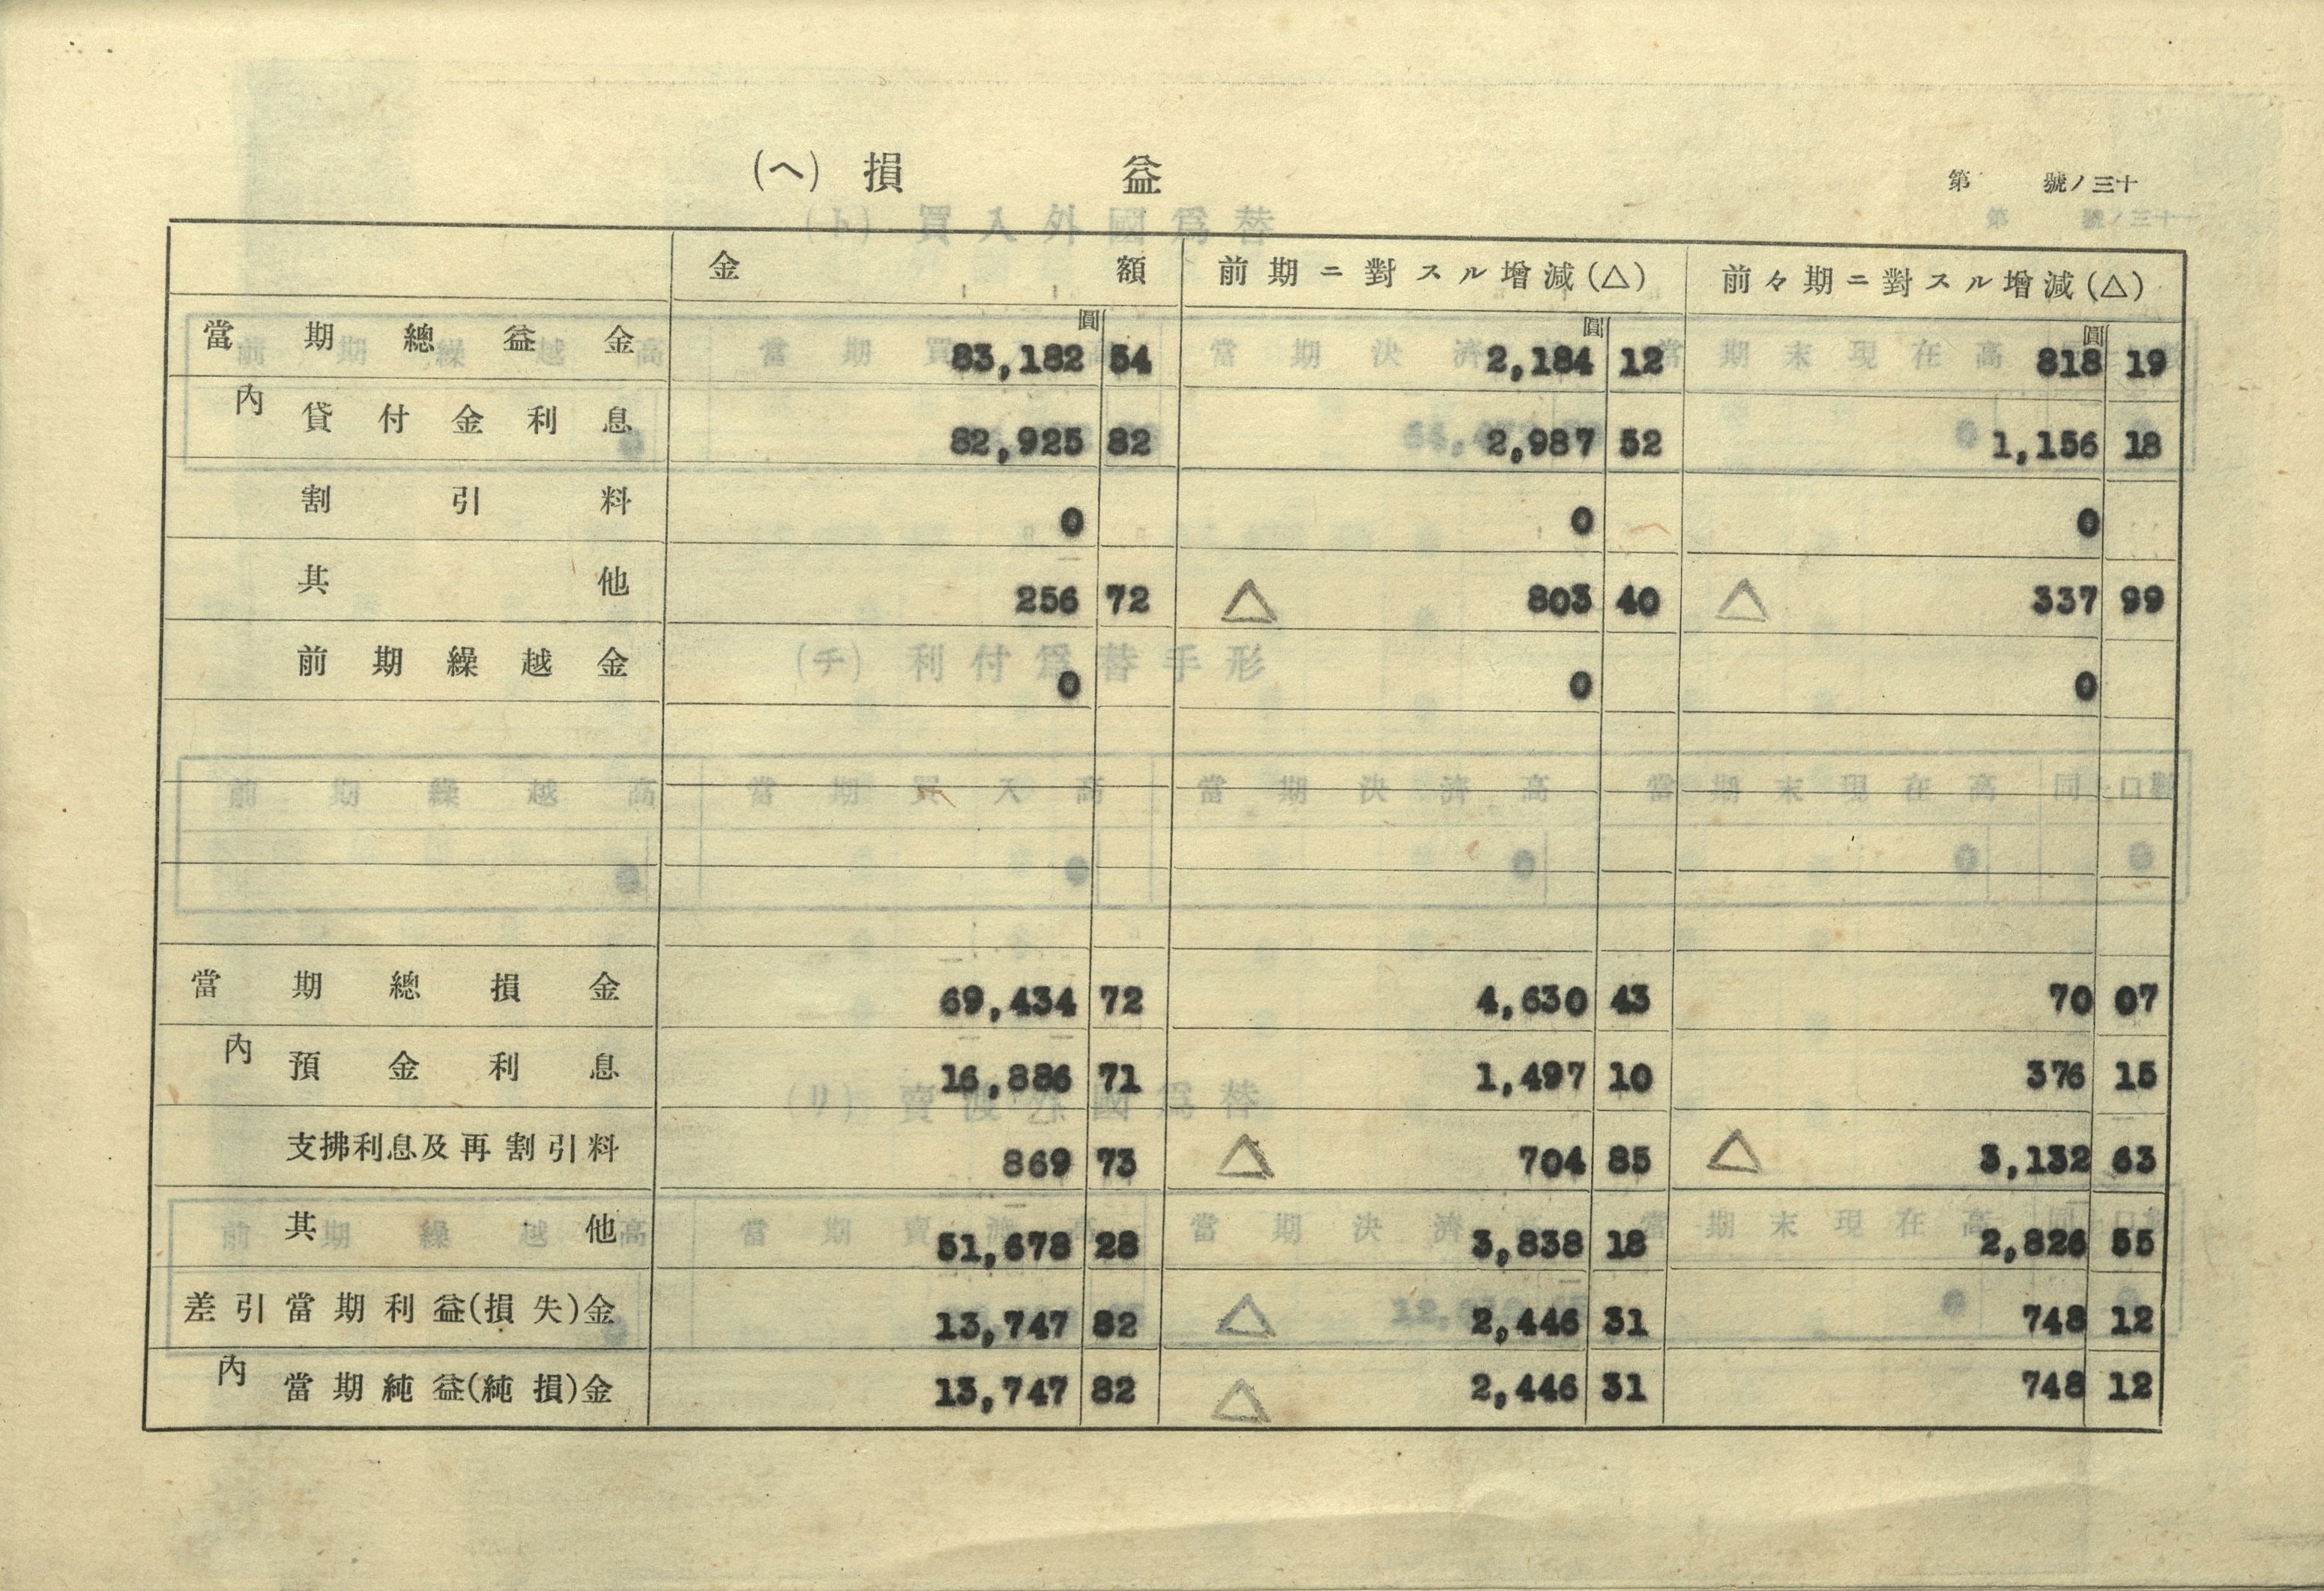 (ヘ) 損益
第 號ノ三十
金額 前期ニ對スル增減(△) 前々期ニ對スル增減(△)
圓 圓 圓
當期總益金 83,182 54 2,184 12 818 19
內 貸付金利息 82,925 82 2,987 52 1,156 18
割引料 0 0 0
其他 256 72 △ 803 40 △ 337 99
前期繰越金 0 0 0
當期總損金 69,434 72 4,630 43 70 07
內 預金利息 16,886 71 1,497 10 376 15
支拂利息及再割引料 869 73 △ 704 85 △ 3,132 63
其他 51,678 28 3,838 18 2,826 55
差引當期利益(損失)金 13,747 82 △ 2,446 31 748 12
內 當期純益(純損)金 13,747 82 △ 2,446 31 748 12